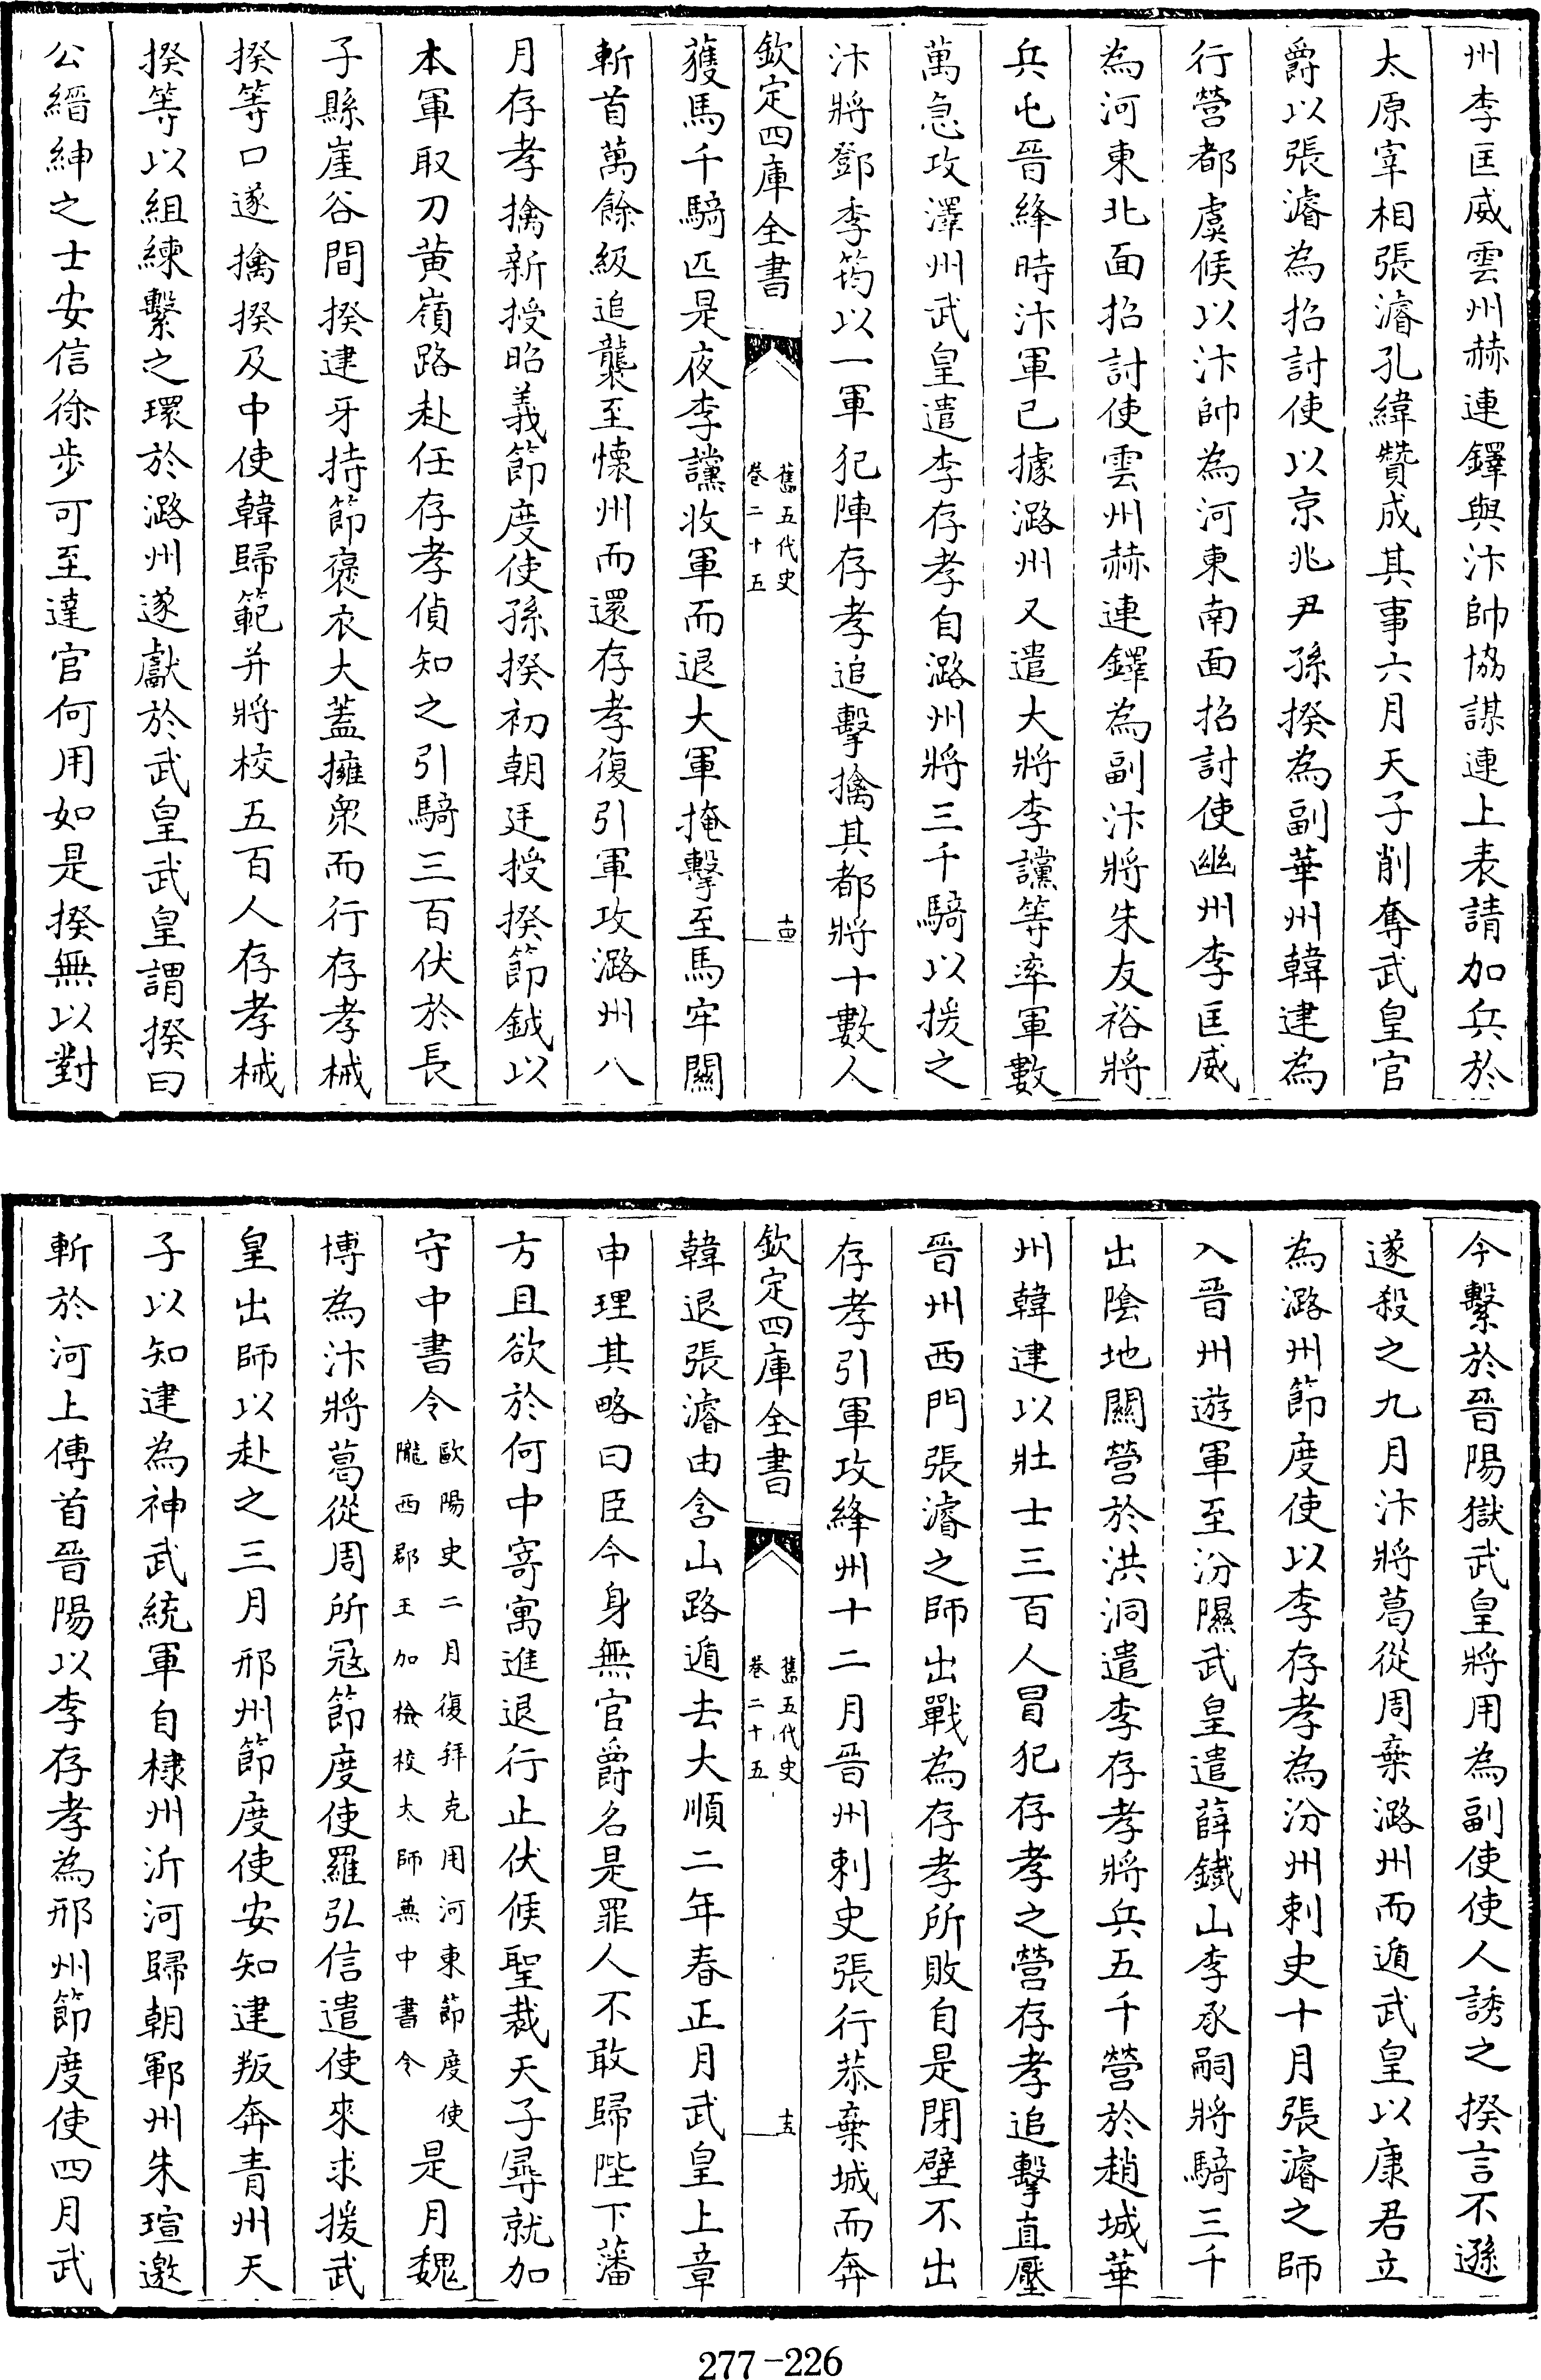 州李匡威雲州赫連鐸與汴帥協謀連上表請加兵於
太原宰相張濬孔緯贊成其事六月天子削奪武皇官
爵以張濬為招討使以京兆尹孫揆為副華州韓建為
行營都虞候以汴帥為河東南面招討使幽州李匡威
為河東北面招討使雲州赫連鐸為副汴將朱友裕將
兵屯晉絳時汴軍已據潞州又遣大將李讜等率軍數
萬急攻澤州武皇遣李存孝自潞州將三千騎以援之
汴將鄧季筠以一軍犯陣存孝追擊擒其都將十數人
欽定四庫全書
舊五代史
卷二十五
十四
獲馬千騎匹是夜李讜收軍而退大軍掩擊至馬牢關
斬首萬餘級追襲至懷州而還存孝復引軍攻潞州八
月存孝擒新授昭義節度使孫揆初朝廷授揆節鉞以
本軍取刀黃嶺路赴任存孝偵知之引騎三百伏於長
子縣崖谷間揆建牙持節褒衣大蓋擁眾而行存孝械
揆等口遂擒揆及中使韓歸範并將校五百人存孝械
揆等以組練繫之環於潞州遂獻於武皇武皇謂揆曰
公縉紳之士安信徐步可至達官何用如是揆無以對
今繫於晉陽獄武皇將用為副使使人誘之揆言不遜
遂殺之九月汴將葛從周棄潞州而遁武皇以康君立
為潞州節度使以李存孝為汾州刺史十月張濬之師
入晉州遊軍至汾隰武皇遣薛鐵山李承嗣將騎三千
出陰地關營於洪洞遣李存孝將兵五千營於趙城華
州韓建以壯士三百人冒犯存孝之營存孝追擊直壓
晉州西門張濬之師出戰為存孝所敗自是閉壁不出
存孝引軍攻絳州十二月晉州刺史張行恭棄城而奔
欽定四庫全書
舊五代史
卷二十五
十五
韓退張濬由含山路遁去大順二年春正月武皇上章
申理其略曰臣今身無官爵名是罪人不敢歸陛下藩
方且欲於何中寄寓進退行止伏候聖裁天子尋就加
守中書令歐陽史二月復拜克用河東節度使隴西郡王加檢校太師兼中書令是月魏
博為汴將葛從周所寇節度使羅弘信遣使來求援武
皇出師以赴之三月邢州節度使安知建叛奔青州天
子以知建為神武統軍自棣州沂河歸朝鄆州朱瑄邀
斬於河上傳首晉陽以李存孝為邢州節度使四月武
277-226